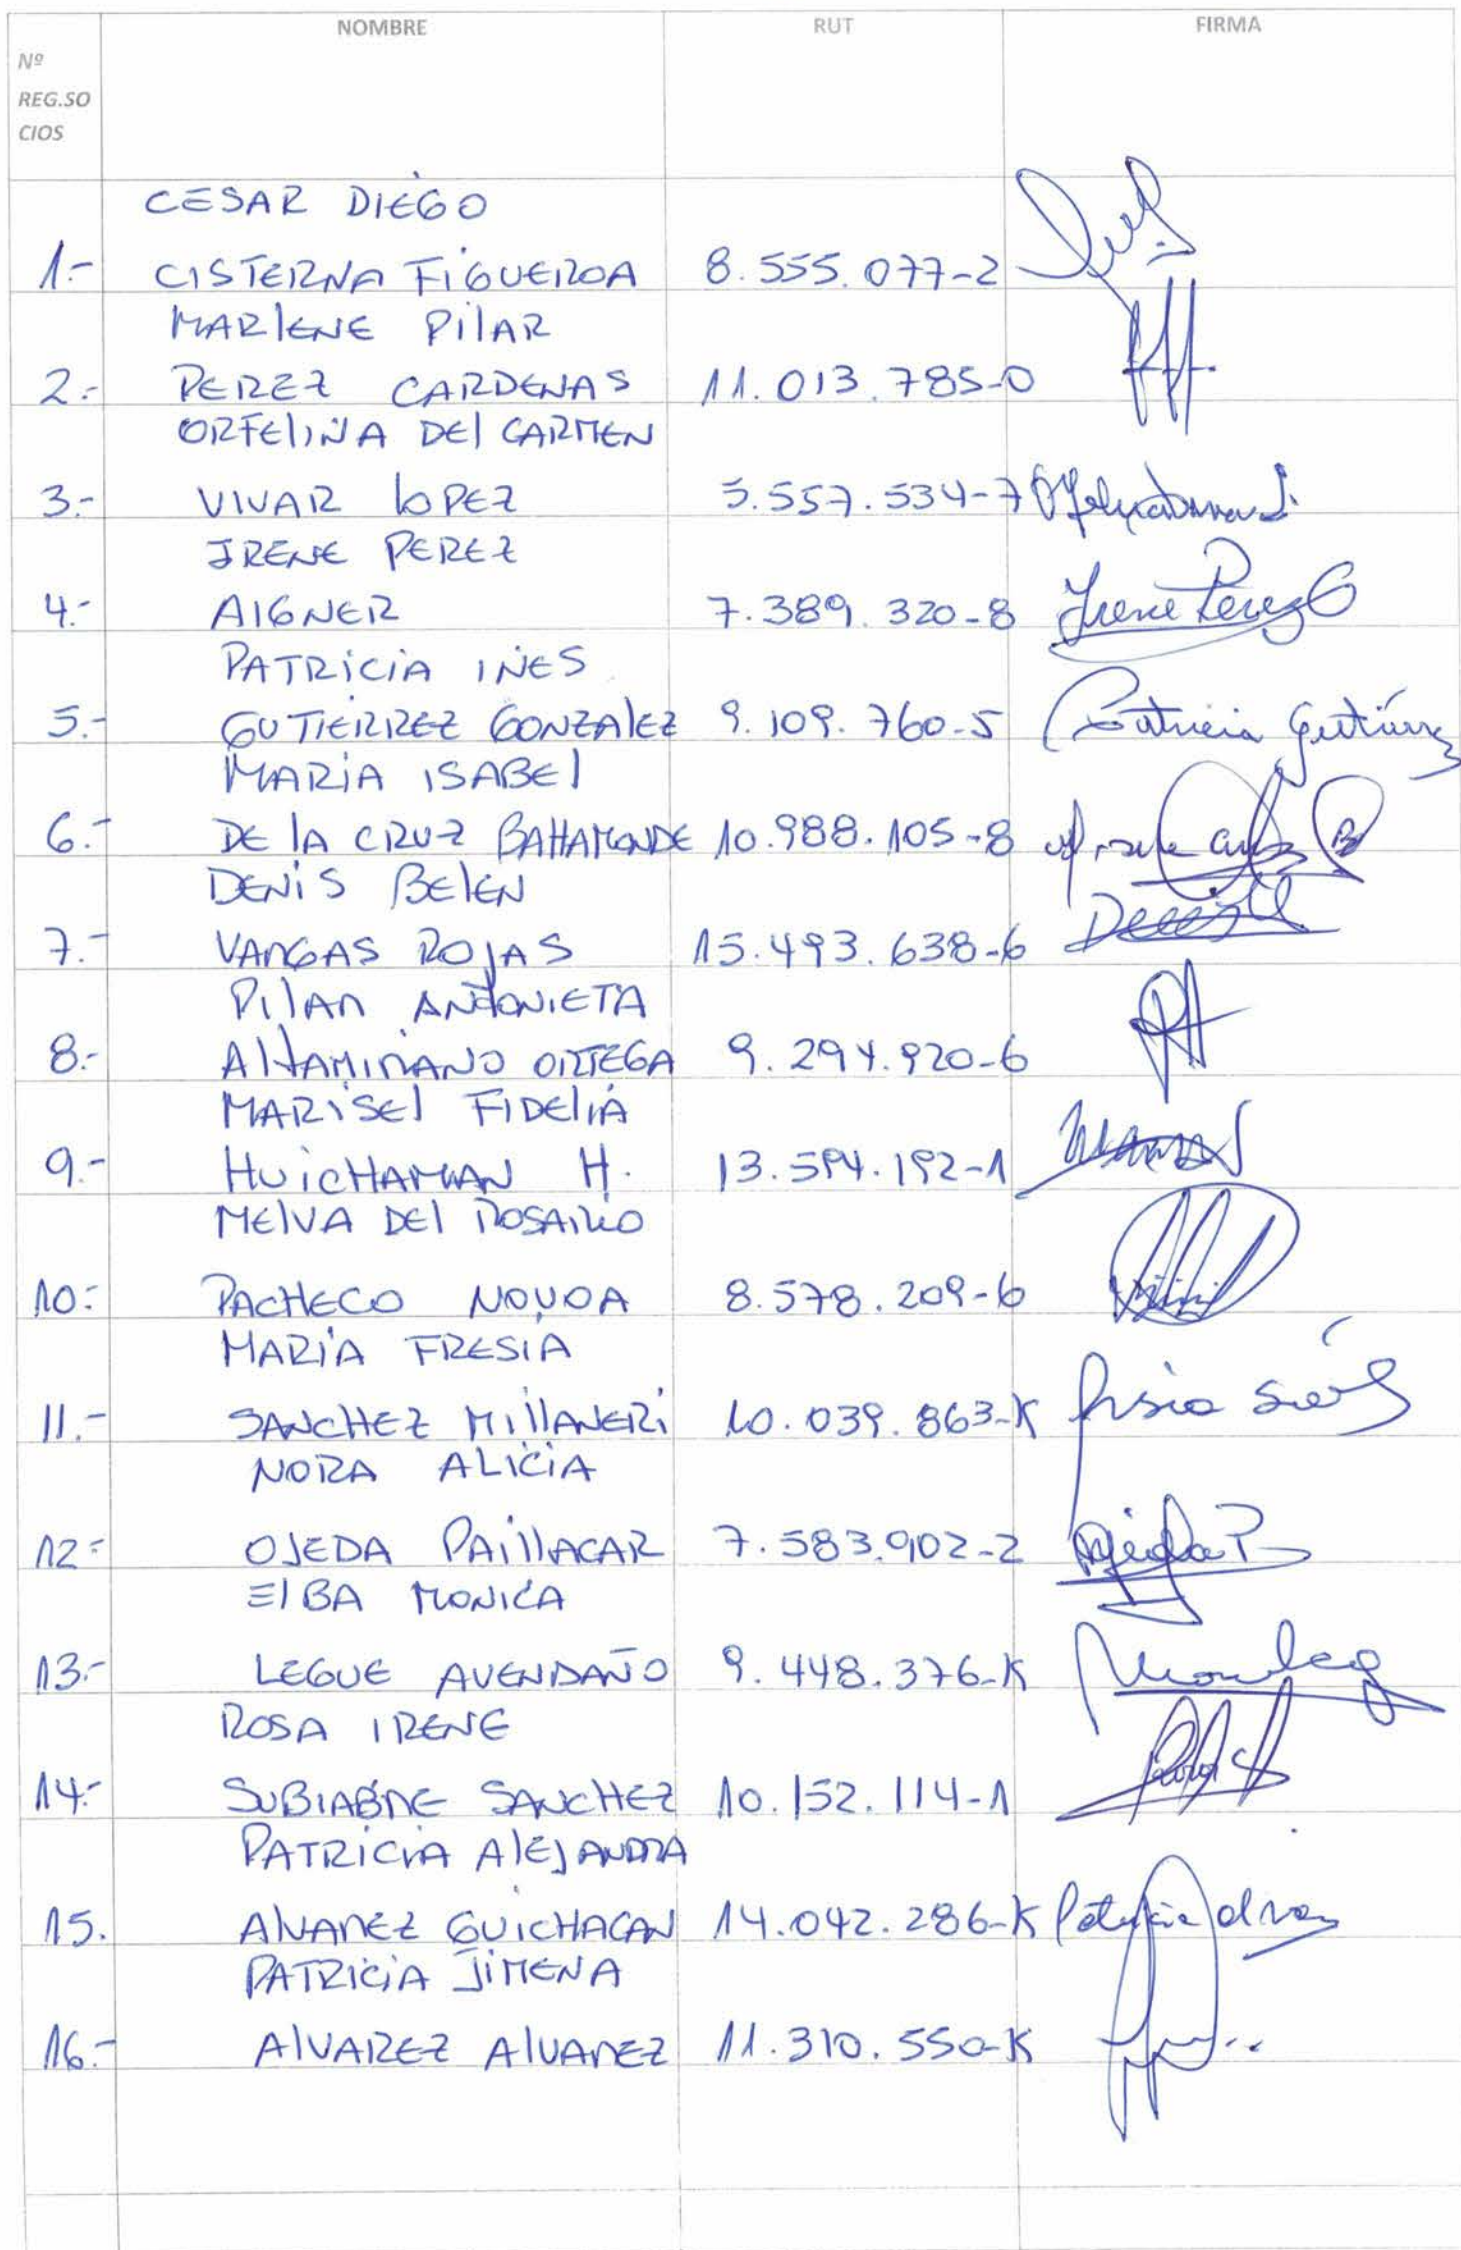 NOMBRE RUT FIRMA
Nº
REG.SO
CIOS
CESAR DIEGO
1.- CISTERNA FIGUEROA 8.555.077-2
MARLENE PILAR
2.- PEREZ CARDENAS 11.013.785-0
ORFELINA DEL CARMEN
3.- VIVAR LOPEZ 5.557.534-7
IRENE PEREZ
4.- AIGNER 7.389.320-8 Irene Perez
PATRICIA INES
5.- GUTIERREZ GONZALEZ 9.109.760-5 Patricia Gutiérrez
MARIA ISABEL
6.- DE LA CRUZ BAHAMONDE 10.988.105-8
DENIS BELEN
7.- VARGAS ROJAS 15.493.638-6
PILAR ANTONIETA
8.- ALTAMIRANO ORTEGA 9.294.920-6
MARISEL FIDELIA
9.- HUICHAMAN H. 13.594.192-1
MELVA DEL ROSARIO
10.- PACHECO NOVOA 8.578.209-6
MARIA FRESIA
11.- SANCHEZ MILLANERI 10.039.863-K
NORA ALICIA
12.- OJEDA PAILLACAR 7.583.902-2 Ojeda P
ELBA MONICA
13.- LEGUE AVENDAÑO 9.448.376-K
ROSA IRENE
14.- SUBIABRE SANCHEZ 10.152.114-1
PATRICIA ALEJANDRA
15. ALVAREZ GUICHACAN 14.042.286-K
PATRICIA JIMENA
16.- ALVAREZ ALVAREZ 11.310.550-K